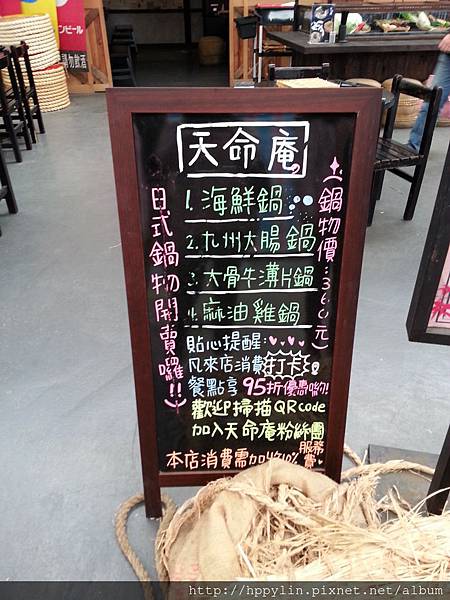 天命庵
日式鍋物開賣囉!!
1. 海鮮鍋
2. 九州大腸鍋
3. 大骨牛薄片鍋
4. 麻油雞鍋
(鍋物價:360元)
貼心提醒:
凡來店消費打卡
餐點享95折優惠喲!
歡迎掃描QR code
加入天命庵粉絲團
本店消費需加收10%服務費
http://hppylin.pixnet.net/album